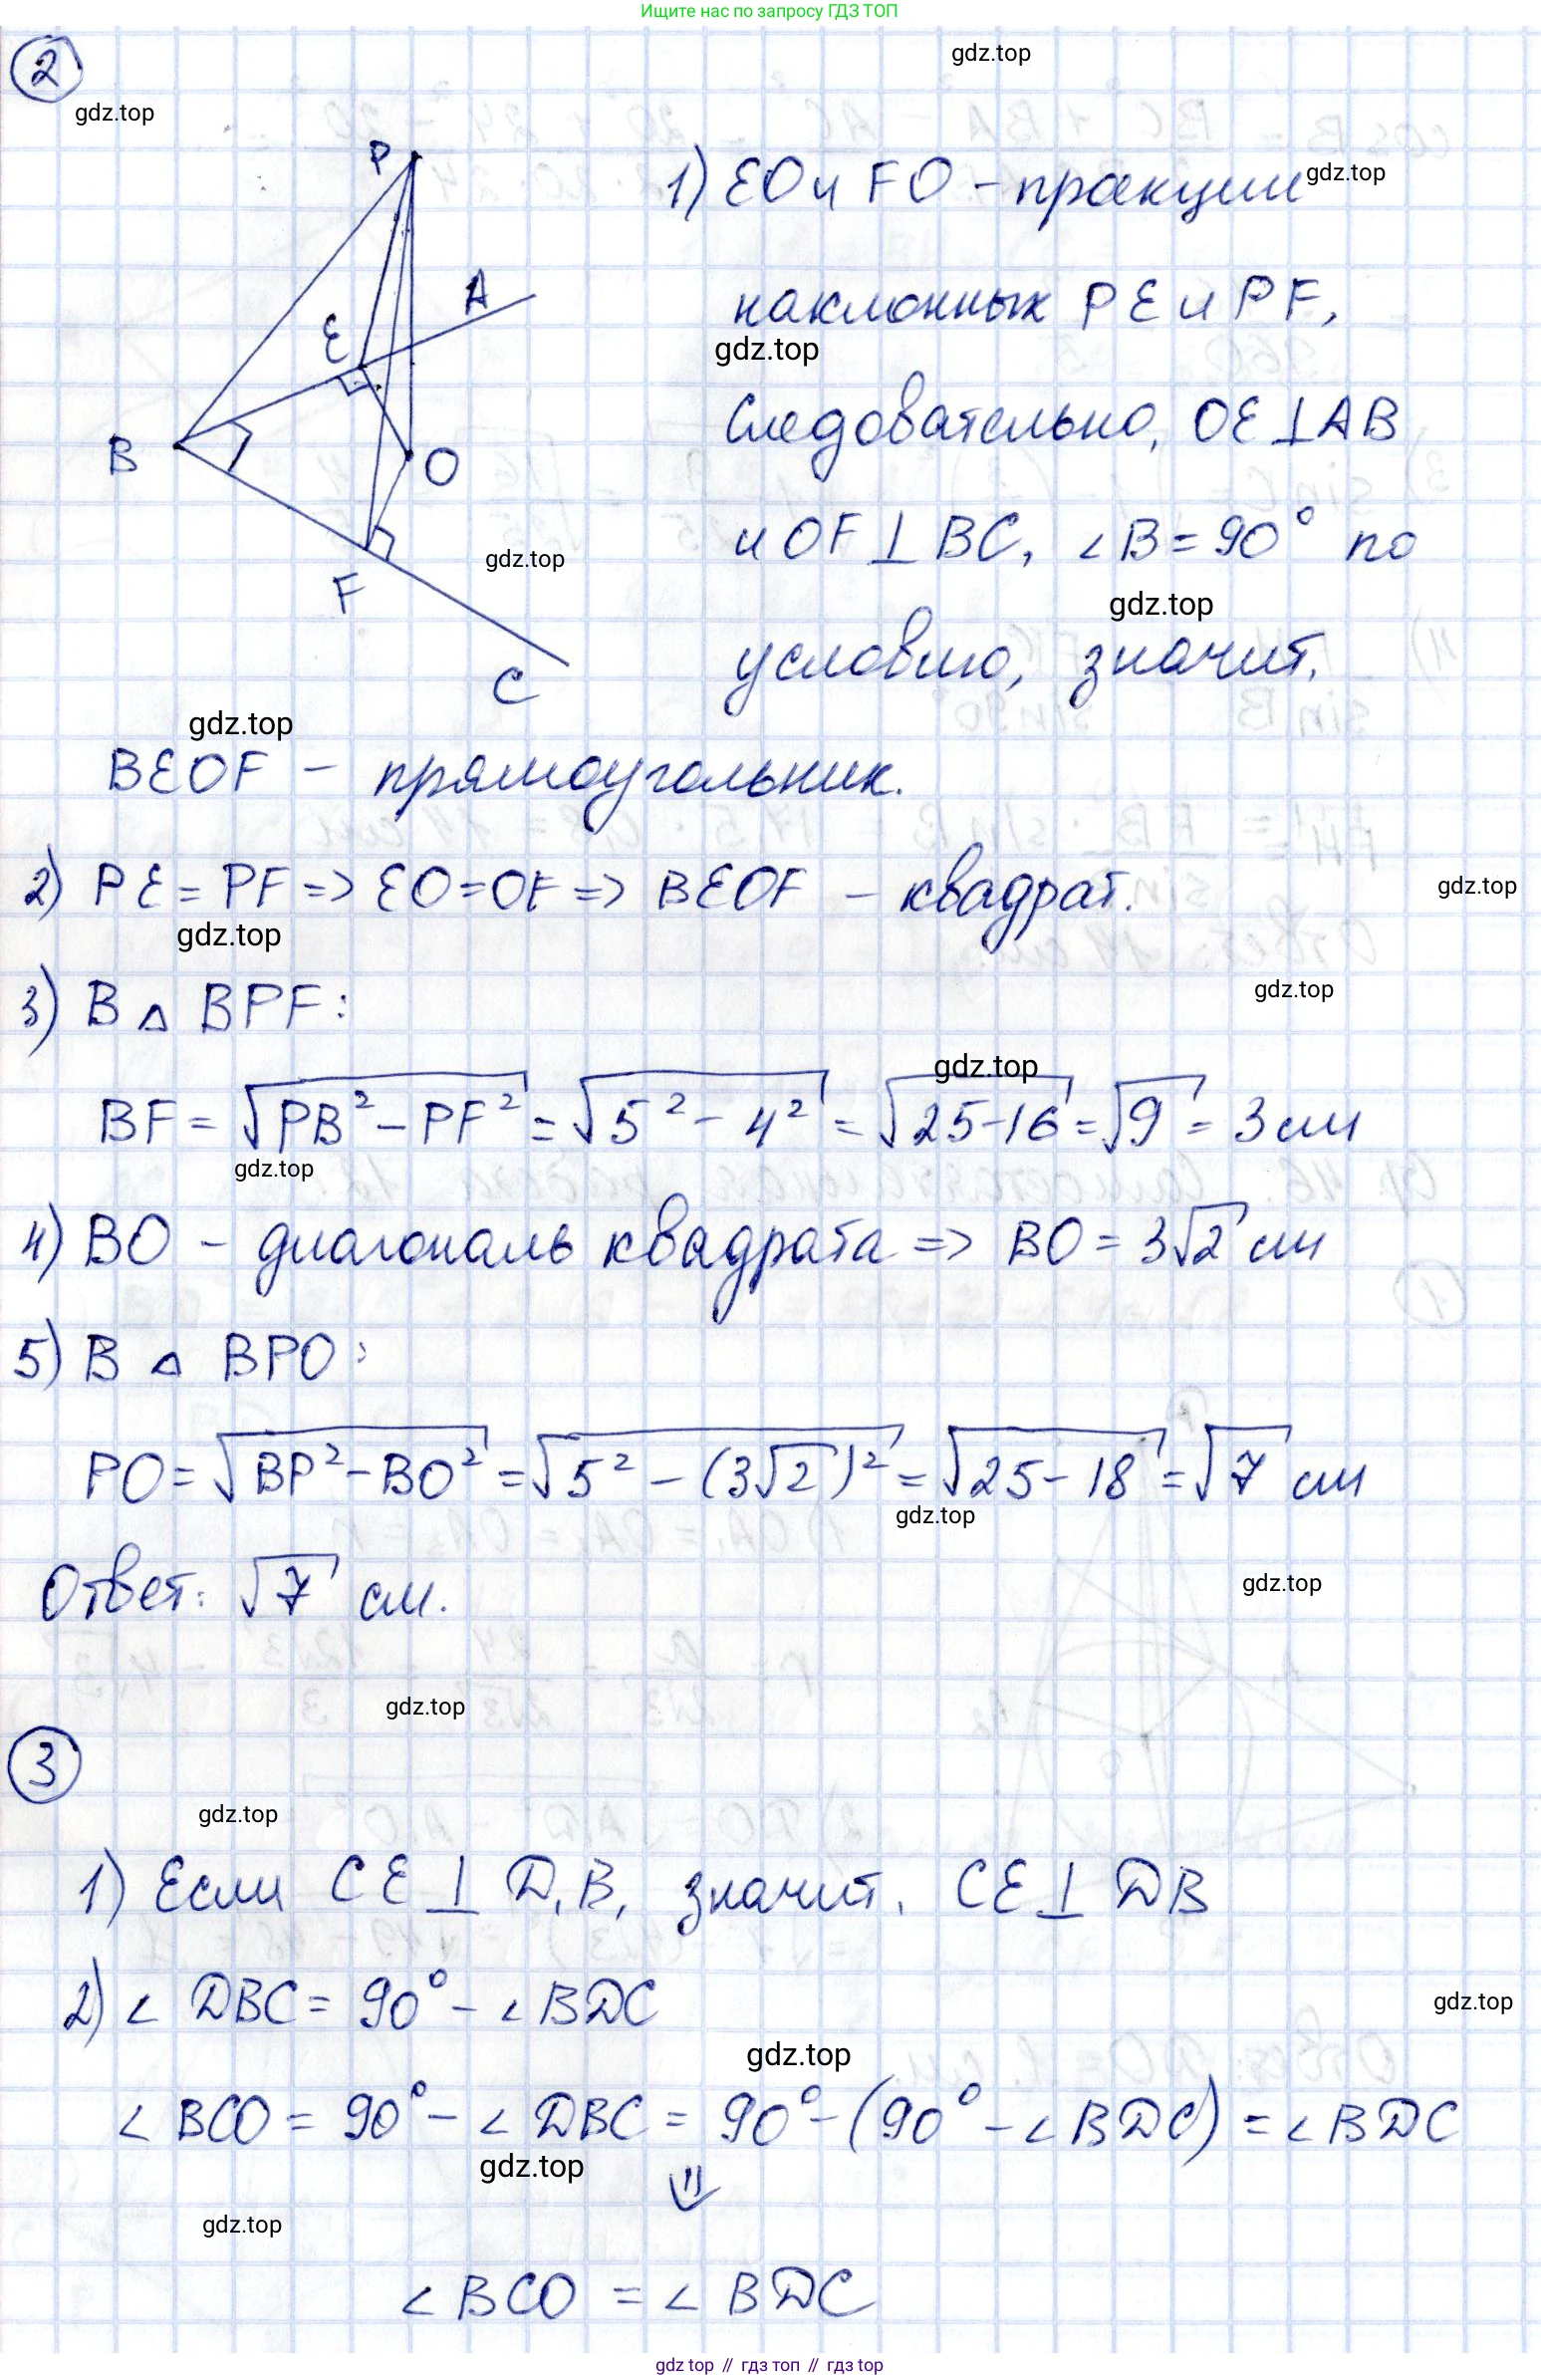 Ищите нас по запросу ГДЗ ТОП
gdz.top
2
gdz.top
P
1) EO и FO – проекции gdz.top
A
наклонных PE и PF,
E
gdz.top
Следовательно, OE ⊥ AB
B
O
и OF ⊥ BC, ∠B = 90° по
gdz.top
F
gdz.top
условию, значит,
C
gdz.top
BEOF – прямоугольник.
2) PE = PF => EO = OF => BEOF – квадрат.
gdz.top
gdz.top
3) В △ BPF:
gdz.top
gdz.top
BF = √(PB² – PF²) = √(5² – 4²) = √(25-16) = √9 = 3 см
gdz.top
4) BO – диагональ квадрата => BO = 3√2 см
5) В △ BPO:
PO = √(BP² – BO²) = √(5² – (3√2)²) = √(25 – 18) = √7 см
gdz.top
Ответ: √7 см.
gdz.top
gdz.top
3
gdz.top
1) Если CE ⊥ D₁B, значит, CE ⊥ DB
2) ∠ DBC = 90° – ∠ BDC
gdz.top
gdz.top
∠ BCO = 90° – ∠ DBC = 90° – (90° – ∠ BDC) = ∠ BDC
gdz.top
⇓
gdz.top
∠ BCO = ∠ BDC
gdz top // гдз топ // gdz top